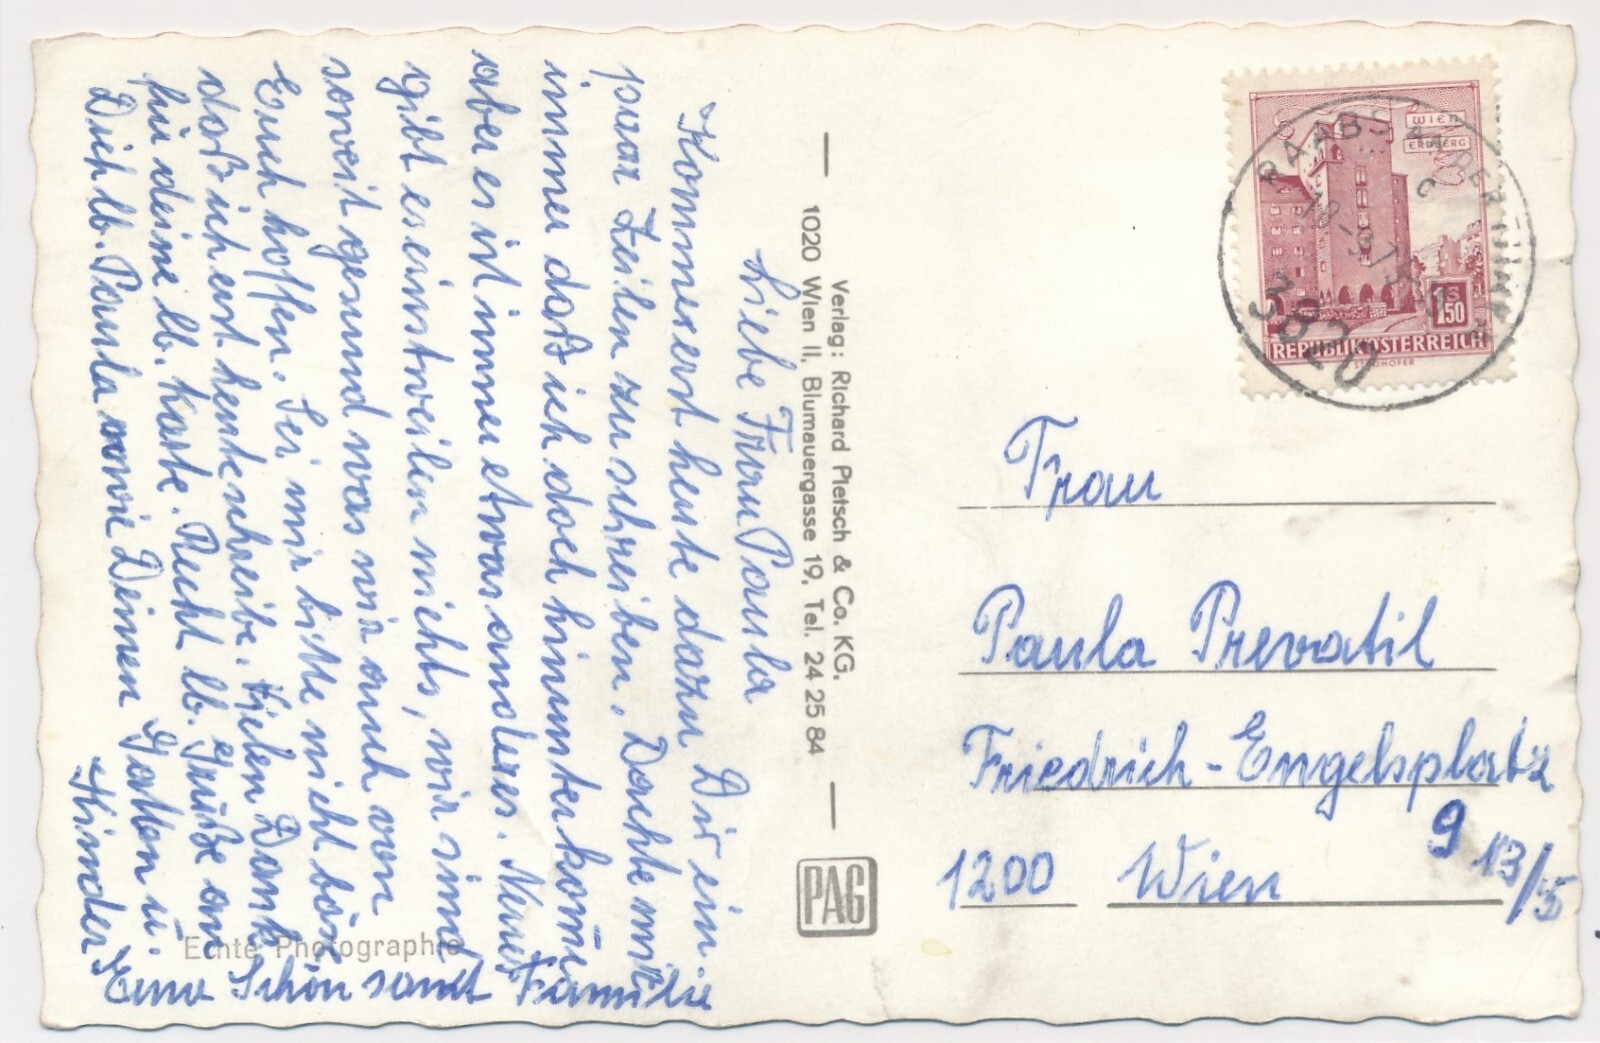 Liebe Frau Paula
Komme erst heute dazu Dir ein
paar Zeilen zu schreiben. Dachte mir
immer daß ich doch hinunterkomme
aber es ist immer etwas anderes. Neues
gibt es einstweilen nichts, wir sind
soweit gesund was wir auch von
Euch hoffen. Sei mir bitte nicht bös
daß ich erst heute schreibe. Vielen Dank
für deine lb. Karte. Recht lb. Grüße an
Dich lb. Paula sowie Deinen Gatten u.
Kinder
Schön samt Familie
Echte Photographie
Verlag: Richard Pietsch & Co. KG.
1020 Wien II, Blumauergasse 19, Tel. 24 25 84
PAG
WIEN
ERDBERG
S 1.50
REPUBLIK ÖSTERREICH
RAABS A.D. THAYA
c
18.-9.7
3820
Frau
Paula Prevatil
Friedrich-Engelsplatz
9 13/5
1200 Wien